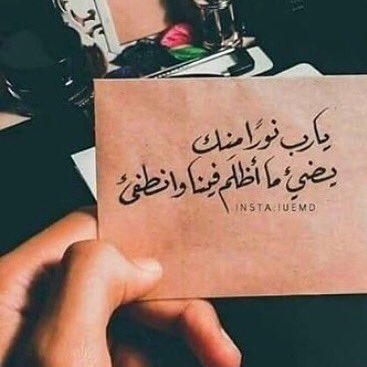 يارب نورًا منك
يضيءُ ما أظلَم فينا وانطفئ
INSTA:IUEMD